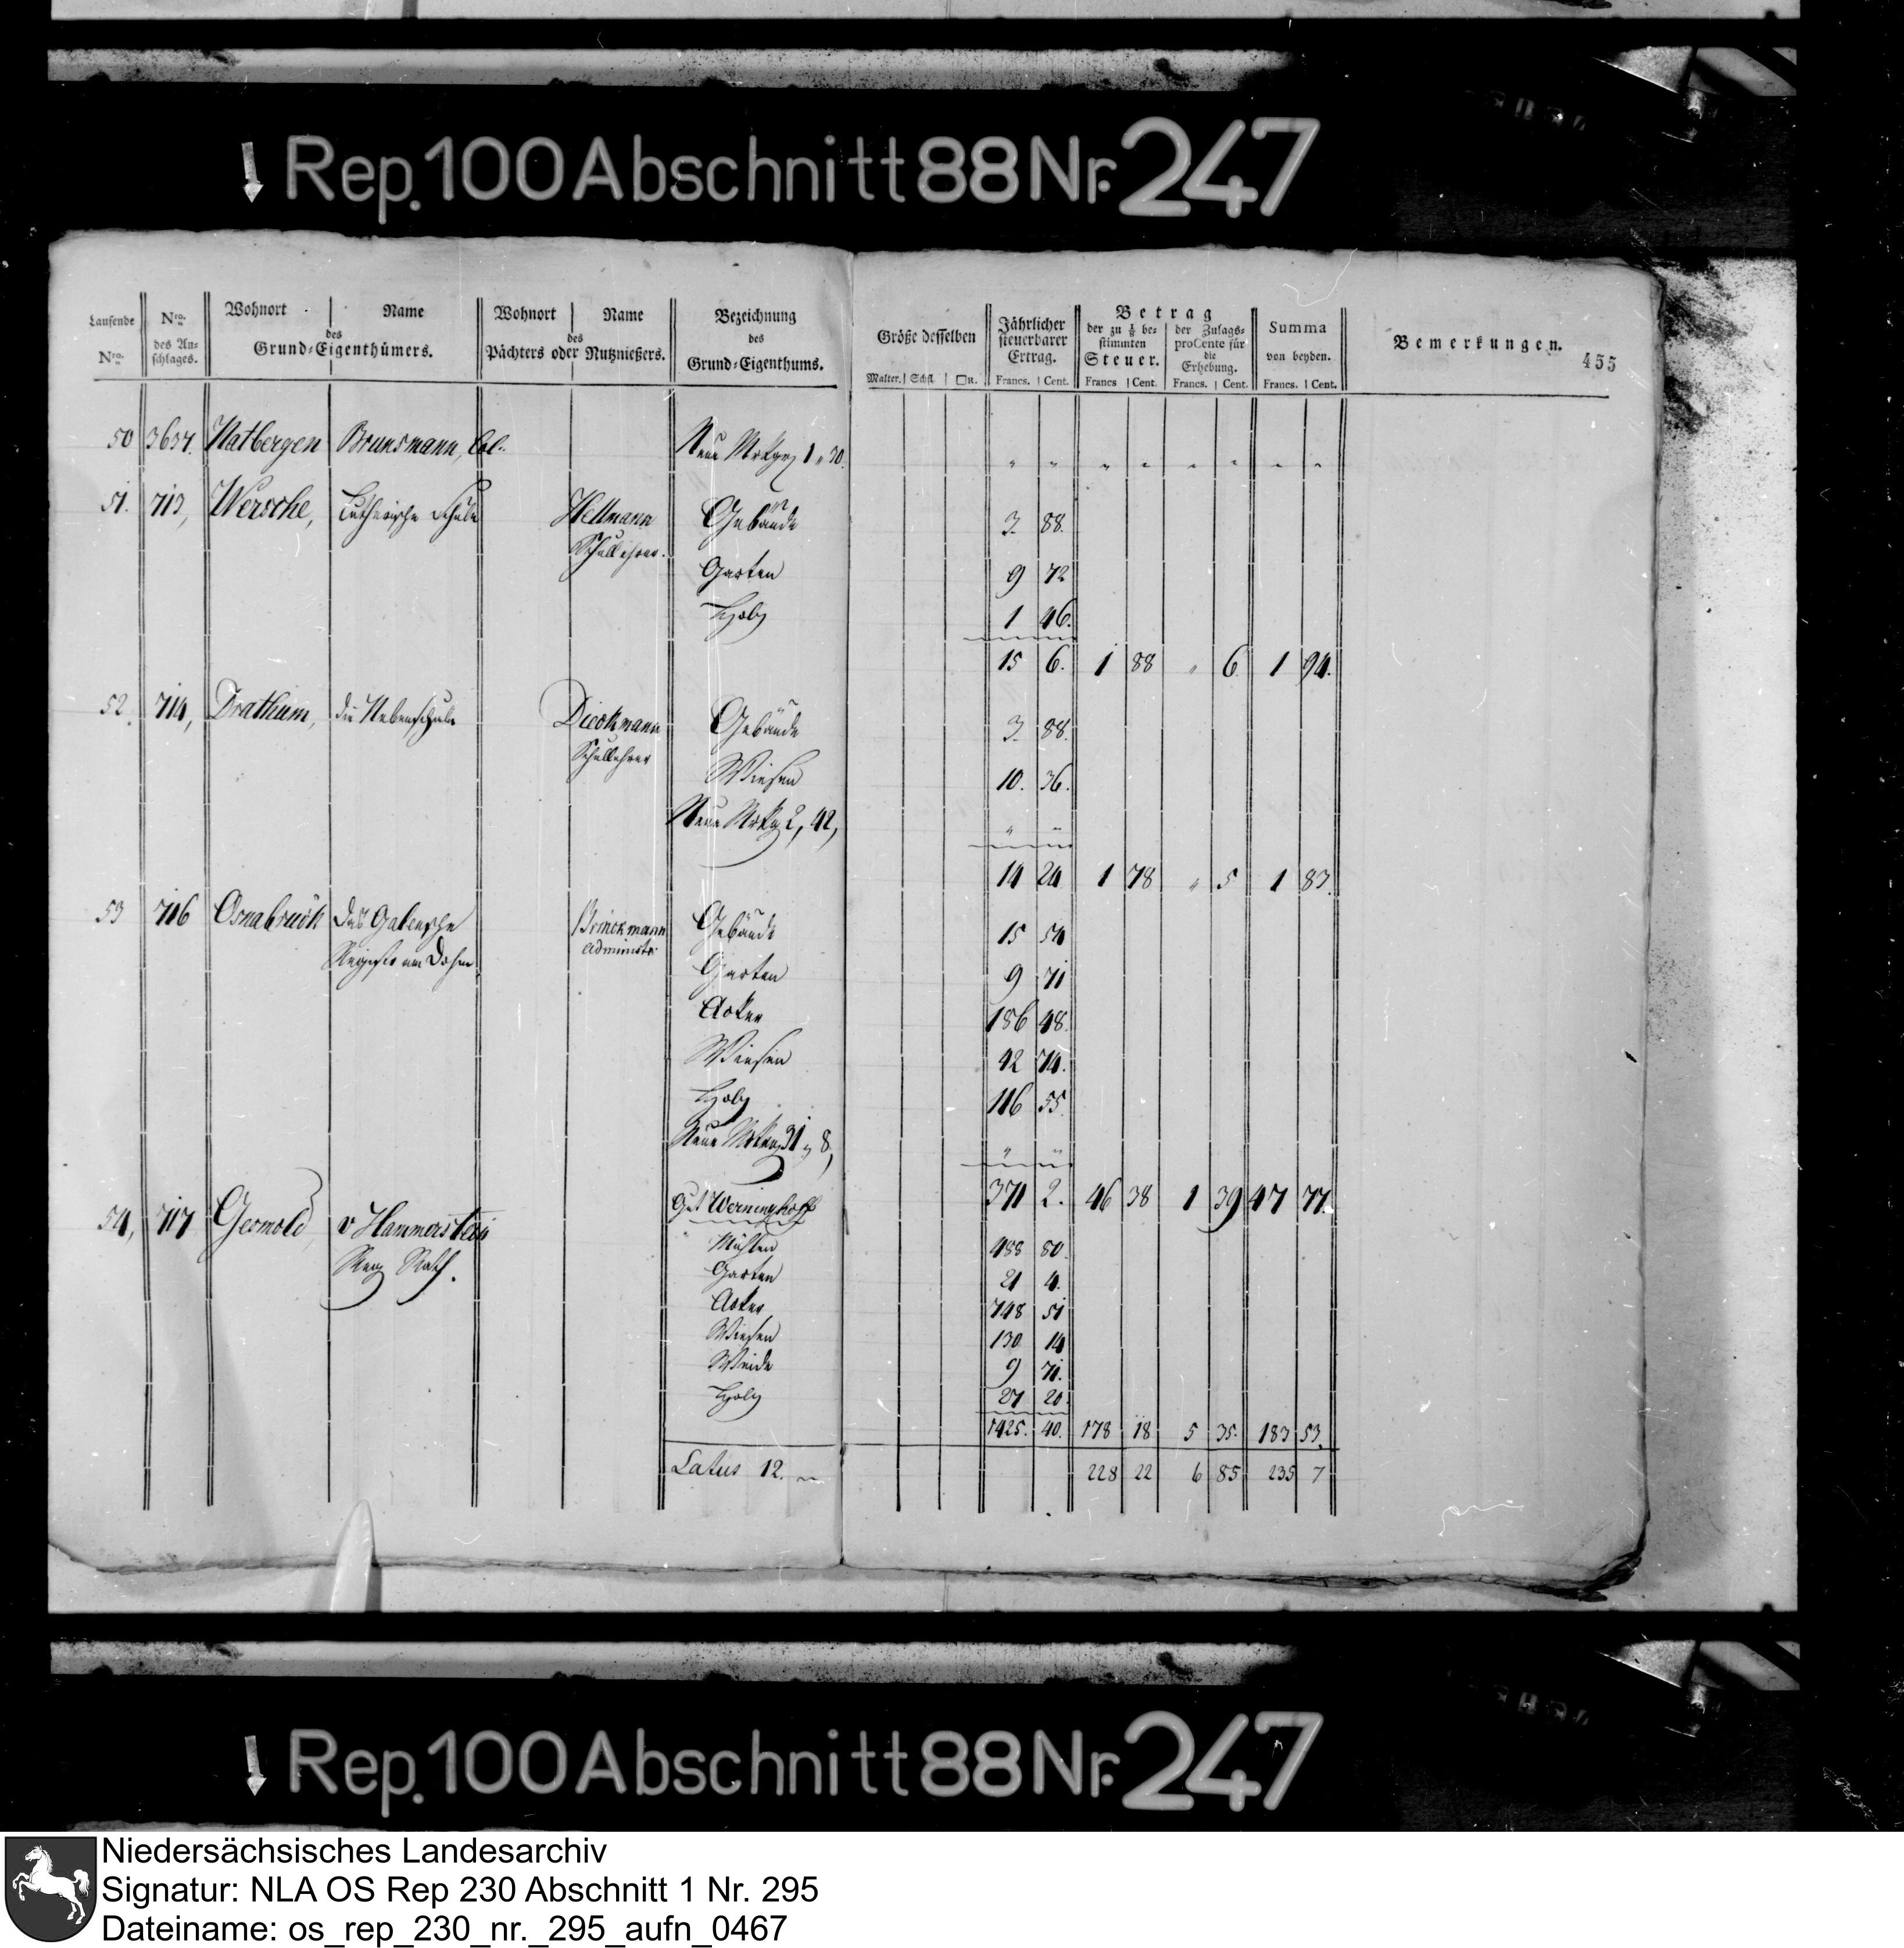 Rep. 100 Abschnitt 88 Nr. 247
Laufende Nro. | Nro. des An-schlages. | Wohnort | Name des Grund-Eigenthümers. | Wohnort | Name des Pächters oder Nutznießers. | Bezeichnung des Grund-Eigenthums. | Größe desselben Malter. Schfl. □R. | Jährlicher steuerbarer Ertrag. Francs. Cent. | Betrag der zu ⅛ be-stimmten Steuer. Francs Cent. | der Zulags-proCente für die Erhebung. Francs. Cent. | Summa von beyden. Francs. Cent. | Bemerkungen.
455
50 3637. Natbergen Brunsmann, Col. 1 " 30. " " " " " " " "
51. 713, Wersche, Lutherische Schule Hellmann Gebäude 3. 88.
Schullehrer.
Garten 9 72
Holz 1 46.
15 6. 1 88 " 6. 1 94.
52. 714, Drathum, die Nebenschule Dieckmann Gebäude 3. 88.
Schullehrer
Wiesen 10. 36.
2, 42, " "
14 24 1 78 " 5 1 83.
53 716 Osnabrück das Brinckmann Gebäude 15 54
am Dohm administr.
Garten 9 71
Acker 186 48.
Wiesen 42 74.
Holz 116 55.
31 " 8, " "
371 2. 46 38 1 39 47 77.
54, 717 Gesmold v Hammerstein Gut Werninghoff
Reg Rath.
Mühlen 488 80.
Garten 21 4.
Acker 748 51
Wiesen 130 14
Weide 9 71.
Holz 27 20.
1425. 40. 178 18 5 35. 183 53.
Latus 12. 228 22 6 85 235 7
Rep. 100 Abschnitt 88 Nr. 247
Niedersächsisches Landesarchiv
Signatur: NLA OS Rep 230 Abschnitt 1 Nr. 295
Dateiname: os_rep_230_nr._295_aufn_0467